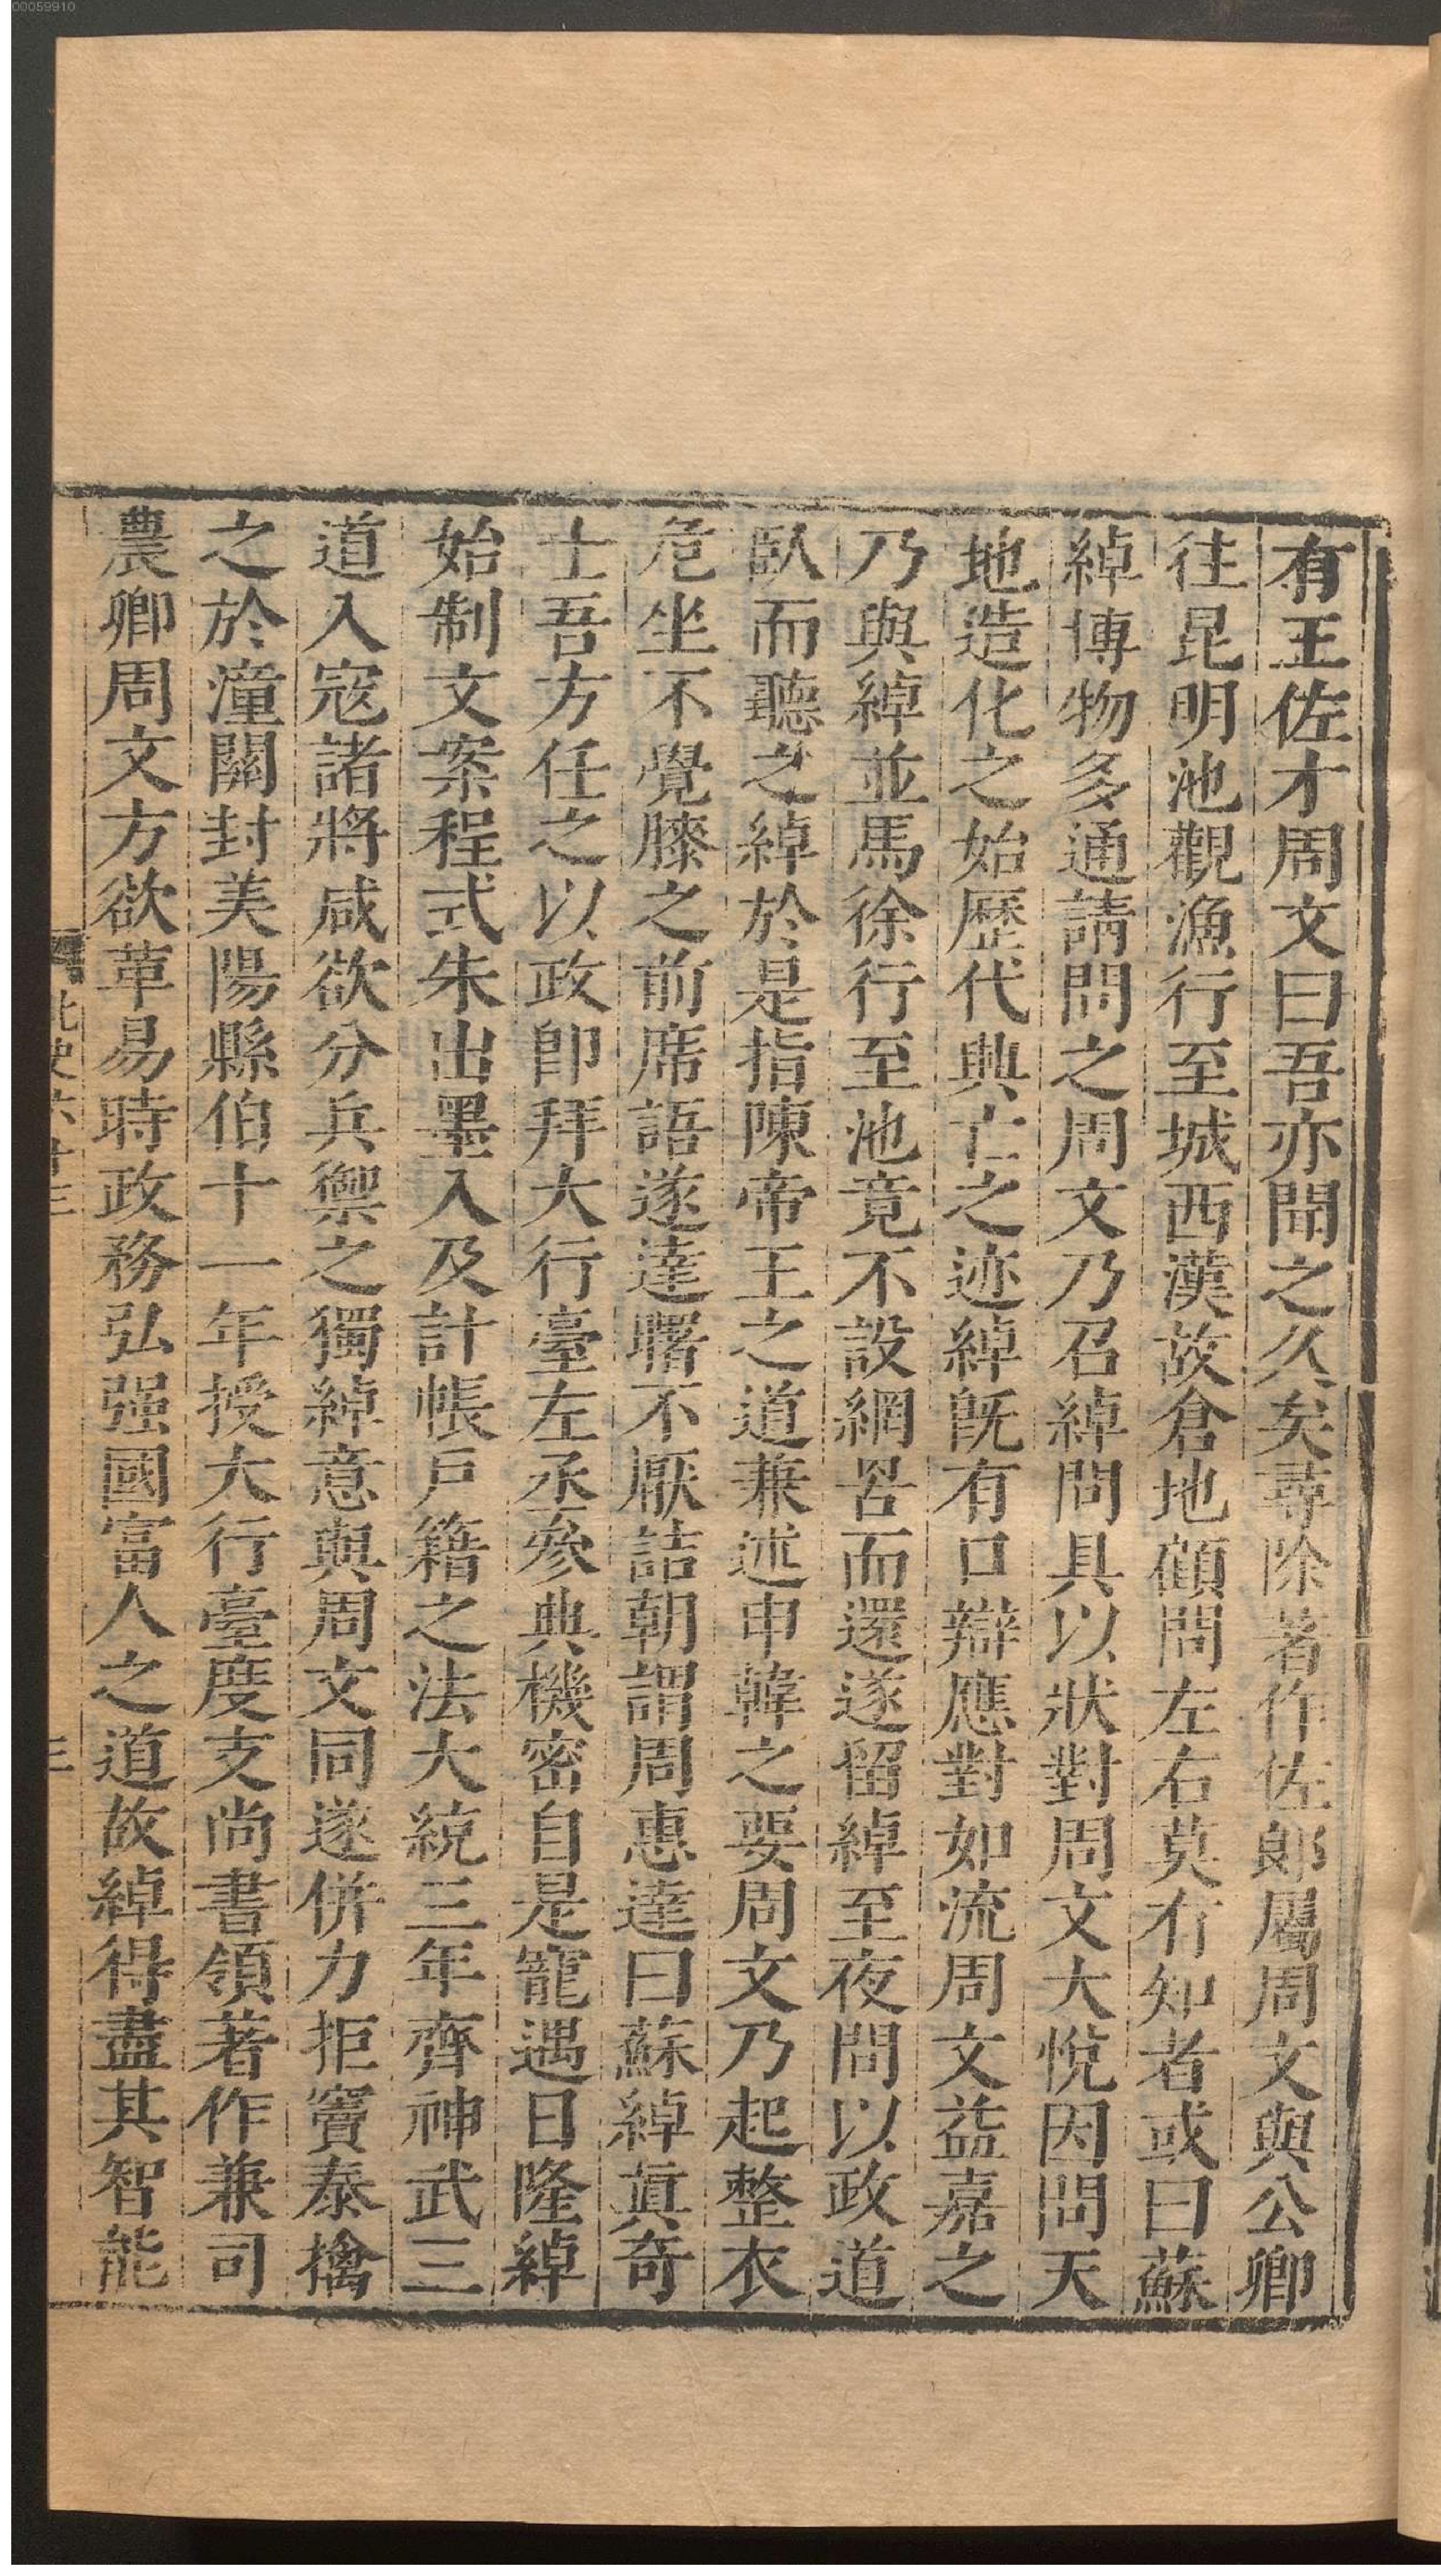 00059910
有王佐才周文曰吾亦聞之久矣尋除著作佐郎屬周文與公卿
往昆明池觀漁行至城西漢故倉地顧問左右莫有知者或曰蘇
綽博物多通請問之周文乃召綽問具以狀對周文大悅因問天
地造化之始歷代興亡之迹綽既有口辯應對如流周文益嘉之
乃與綽並馬徐行至池竟不設網罟而還遂留綽至夜問以政道
臥而聽之綽於是指陳帝王之道兼述申韓之要周文乃起整衣
危坐不覺膝之前席語遂達曙不厭詰朝謂周惠達曰蘇綽真奇
士吾方任之以政即拜大行臺左丞參典機密自是寵遇日隆綽
始制文案程式朱出墨入及計帳戶籍之法大統三年齊神武三
道入寇諸將咸欲分兵禦之獨綽意與周文同遂併力拒竇泰擒
之於潼關封美陽縣伯十一年授大行臺度支尚書領著作兼司
農卿周文方欲革易時政務弘强國富人之道故綽得盡其智能
北史六十三
三